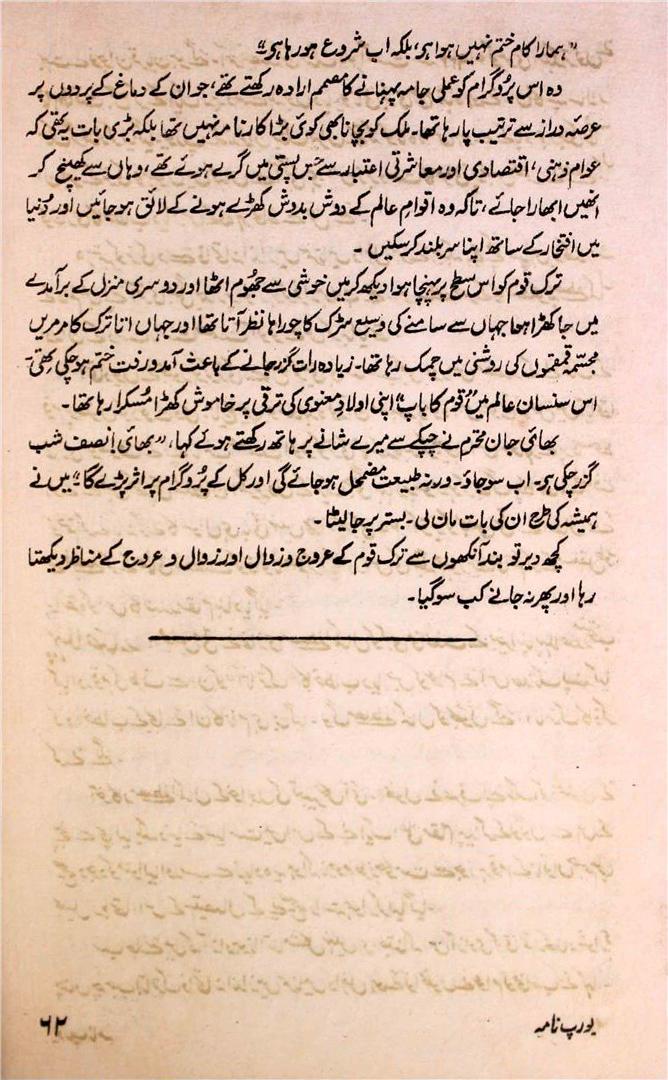 "ہمارا کام ختم نہیں ہوا ہو، بلکہ اب شروع ہو رہا ہو"
وہ اس پُروگرام کو عملی جامہ پہنانے کا مصمم ارادہ رکھتے تھے، جو ان کے دماغ کے پردوں پر
عرصۂ دراز سے ترتیب پا رہا تھا۔ ملک کو بچانا بھی کوئی بڑا کارنامہ نہیں تھا بلکہ بڑی بات یہ تھی کہ
عوام ذہنی، اقتصادی اور معاشرتی اعتبار سے جس پستی میں گرے ہوئے تھے، وہاں سے کھینچ کر
انھیں ابھارا جائے، تاکہ وہ اقوامِ عالم کے دوش بدوش کھڑے ہونے کے لائق ہو جائیں اور دُنیا
میں افتخار کے ساتھ اپنا سر بلند کر سکیں ۔
ترک قوم کو اس سطح پر پہنچا ہوا دیکھ کر میں خوشی سے جھوم اٹھا اور دوسری منزل کے برآمدے
میں جا کھڑا ہوا جہاں سے سامنے کی وسیع سڑک کا چوراہا نظر آتا تھا اور جہاں اتا ترک کا مرمریں
مجسّمہ قمقموں کی روشنی میں چمک رہا تھا۔ زیادہ رات گزر جانے کے باعث آمد و رفت ختم ہو چکی تھی۔
اس سنسان عالم میں "قوم کا باپ" اپنی اولادِ معنوی کی ترقی پر خاموش کھڑا مُسکرا رہا تھا۔
بھائی جان محترم نے چپکے سے میرے شانے پر ہاتھ رکھتے ہوئے کہا، "بھائی! نصف شب
گزر چکی ہو۔ اب سو جاؤ۔ ورنہ طبیعت مضمحل ہو جائے گی اور کل کے پُروگرام پر اثر پڑے گا" میں نے
ہمیشہ کی طرح ان کی بات مان لی۔ بستر پر جا لیٹا۔
کچھ دیر تو بند آنکھوں سے ترک قوم کے عروج و زوال اور زوال و عروج کے مناظر دیکھتا
رہا اور پھر نہ جانے کب سو گیا۔
یورپ نامہ
۶۲